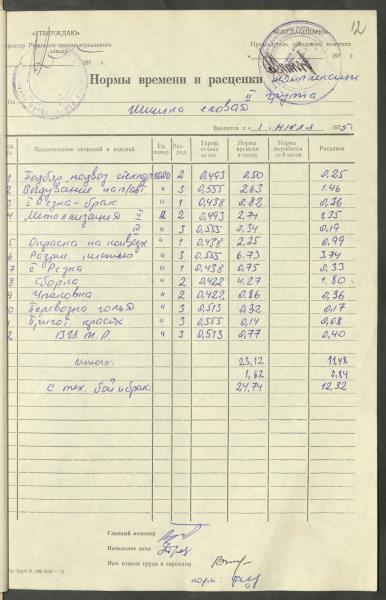 «УТВЕРЖДАЮ» «СОГЛАСОВАНО»
завода Председатель заводского комитета
197 г. 197 г.
12
Нормы времени и расценки комплексные
II группа
На Шишка еловая
Вводится с «1» июля 1975 г.
№ Наименование операций и изделий Ед. измер. Разряд Тариф. ставка за час Норма времени в часах Норма выработки за 8 часов Расценок
1 Подбор, подвоз стеклодрота 1000 2 0,493 0,50 0,25
2 Выдувание " 3 0,555 2,63 1.46
3 I Резка - брак " 1 0,438 0,82 0,36
4 Металлизация II 2 0,493 2,74 1,35
III " 3 0,555 0,34 0,19
5 Окраска на конвейере " 1 0,438 2,25 0,99
6 Разрис. кистью " 3 0,555 6.73 3.74
7 II Резка " 1 0,438 0,75 0,33
8 Сборка " 2 0,422 4.27 1.80
9 Упаковка " 2 0,422 0.86 0,36
0 Перевозка " 3 0,513 0,32 0,17
1 Пригот. красок " 3 0,555 0,14 0,08
2 " 3 0,513 0,77 0,40
Итого: 23,12 11,48
1,62 0,84
С тех. бой и брак. 24,74 12,32
Главный инженер
Начальник цеха
Нач. отдела труда и зарплаты
норм.